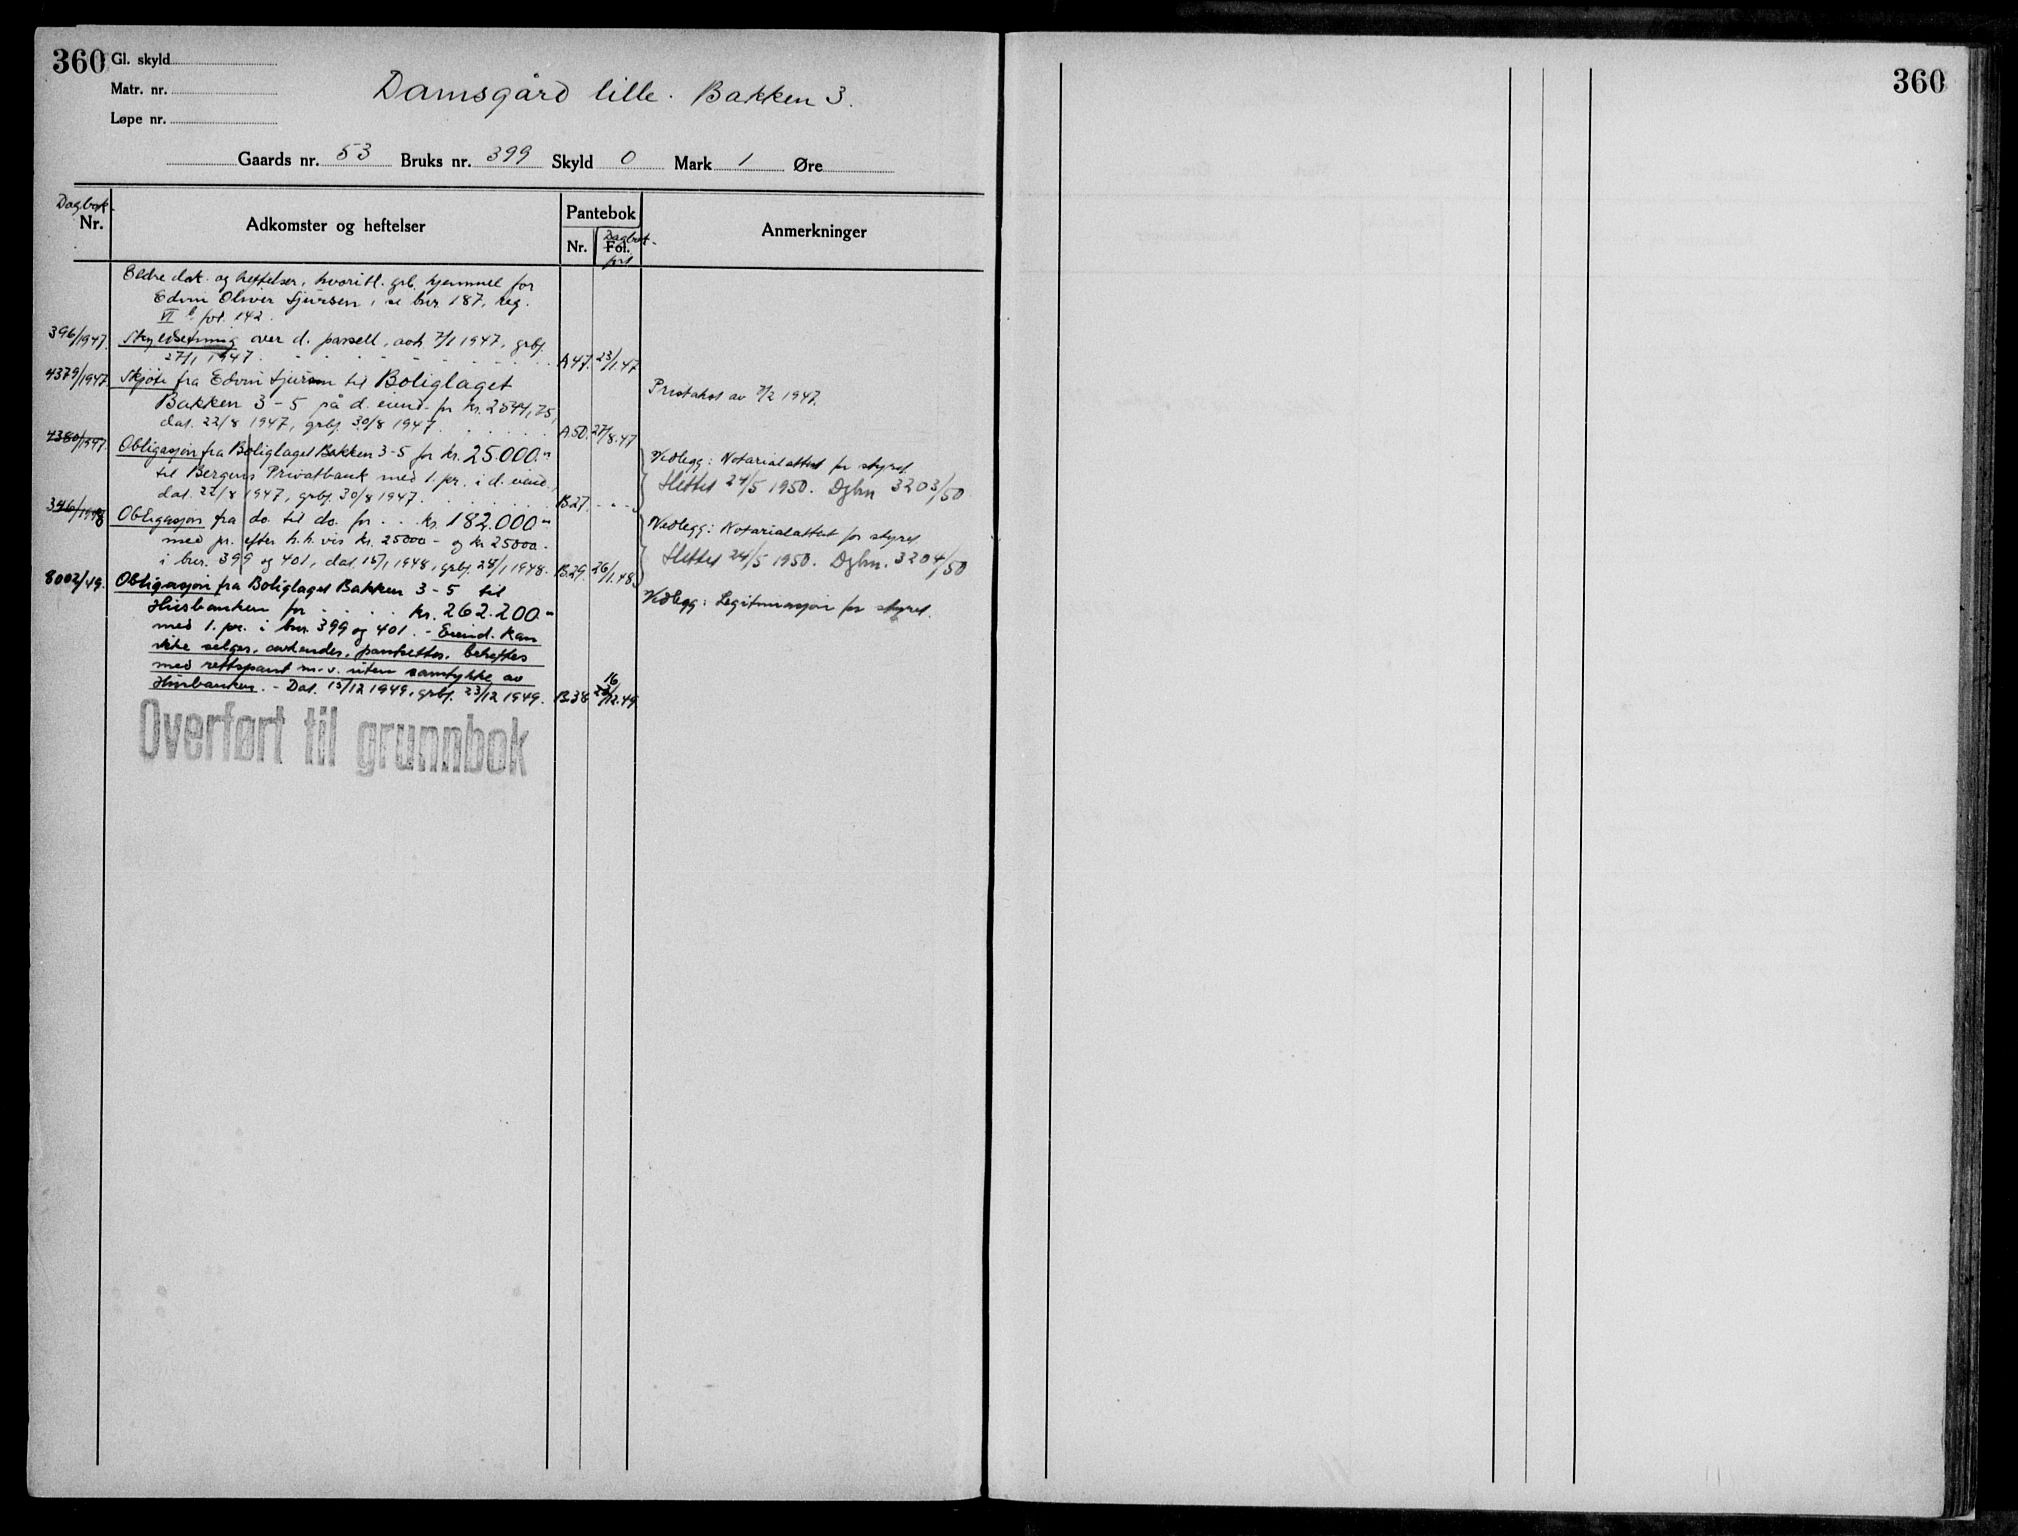 360
Gl. skyld
Matr. nr.
Løpe nr.
Damsgård lille. Bakken 3.
Gaards nr. 53 Bruks nr. 399 Skyld 0 Mark 1 Øre
Dagbok-
Nr.
Adkomster og heftelser
Pantebok
Nr.
Fol.
Dagbok-
ført
Anmerkninger
Eldre dok. og heftelser, hvoritl. grb. hjemmel for
Edvin Oliver Sjursen, se bnr 187, reg.
VI b fol. 142.
396/1947. Skyldsetning over d. parsell, avh. 7/1 1947, grbf.
27/1 1947. A47. 23/1.47
4379/1947 Skjøte fra Edvin Sjursen til Boliglaget
Bakken 3-5 på d. eiend. for kr. 2544,75, Protokol av 7/2 1947.
dat. 22/8 1947, grbf. 30/8 1947. A50. 27/8.47
4380/1947. Obligasjon fra Boliglaget Bakken 3-5 for kr. 25.000.- Vedlegg: Notarialattest for styret.
til Bergens Privatbank med 1. pr. i d. eiend., Slettet 24/5 1950. Dgbnr 3203/50
dat. 22/8 1947, grbf. 30/8 1947. B27. - - -
346/1948 Obligasjon fra do. til do. for . . . kr. 182.000.- Vedlegg: Notarialattest for styret
med pr. efter h.h.vis kr. 25000.- og kr 25000.- Slettet 24/5 1950. Dgbnr. 3204/50
i bnr. 399 og 401, dat. 15/1 1948, grbf. 28/1 1948. B29. 26/1.48
8002/49. Obligasjon fra Boliglaget Bakken 3-5 til
Husbanken for . . . . kr. 262.200.- Vedlegg: Legitimasjon for styret.
med 1. pr. i bnr. 399 og 401. - Eiend. kan
ikke selges, avhendes, pantsettes, beheftes
med rettspant m.v. uten samtykke av
Husbanken. - Dat. 15/12 1949, grbf. 23/12 1949. B38 16/12.49
Overført til grunnbok
360